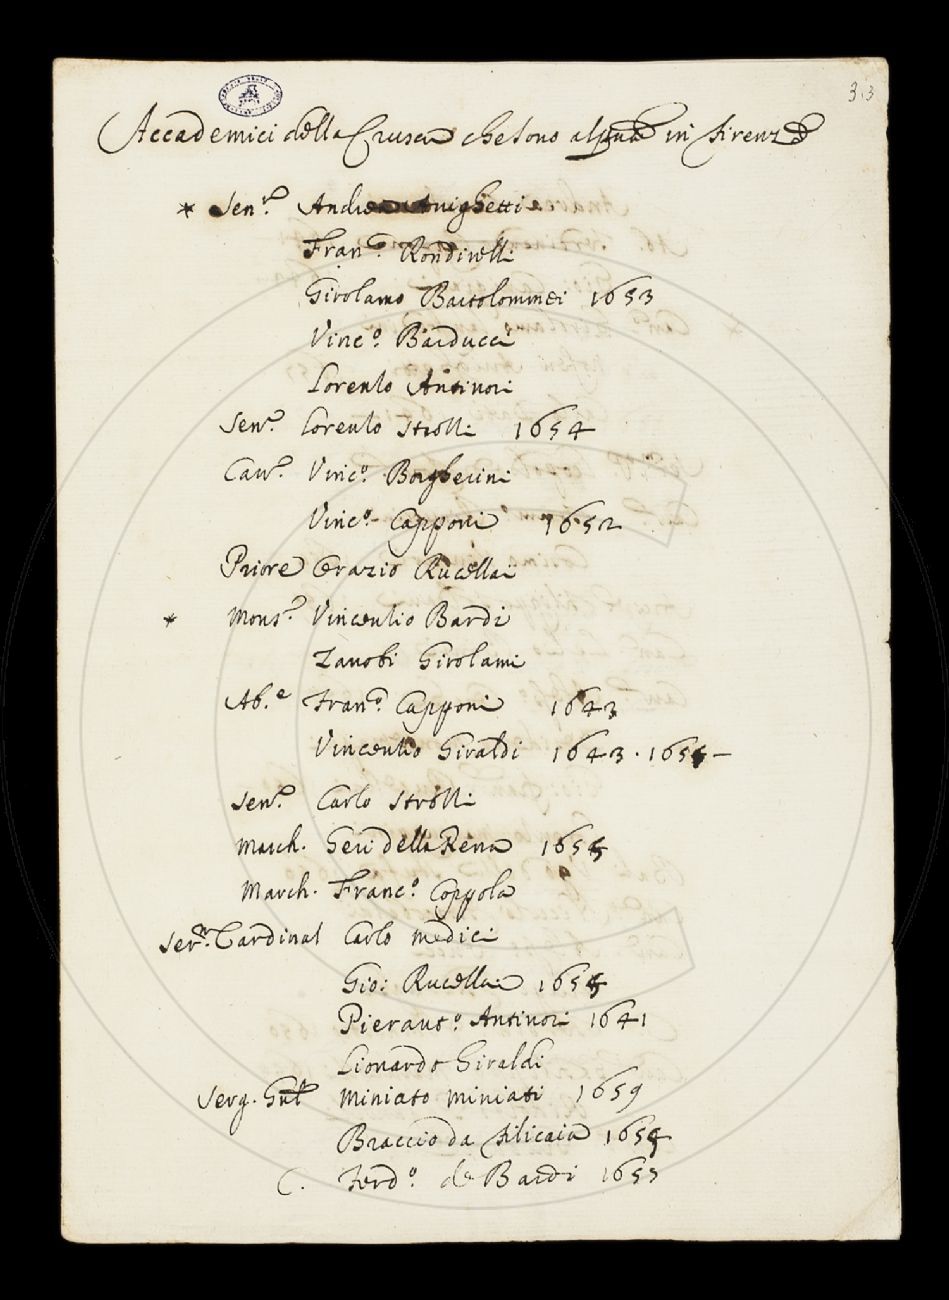 33
Accademici della Crusca che sono al pnte in Firenze
* Sen.re Andrea Arrighetti
Fran.co Rondinelli
Girolamo Bartolommei 1653
Vinc.o Barducci
Lorenzo Antinori
Sen.re Lorenzo Strozzi 1654
Cav.re Vinc.o Borgherini
Vinc.o Capponi 1652
Priore Orazio Rucellai
* Mons.r Vincenzio Bardi
Zanobi Girolami
Ab.e Fran.co Capponi 1643
Vincenzio Giraldi 1643 · 1655 –
Sen.re Carlo Strozzi
March. Geri della Rena 1655
March. Franc.o Coppola
Ser.mo Cardinal Carlo Medici
Gio: Rucellai 1655
Pierant.o Antinori 1641
Lionardo Giraldi
Serg. Gnl Miniato Miniati 1659
Braccio da Filicaia 1655
C. Ferd.o de Bardi 1655